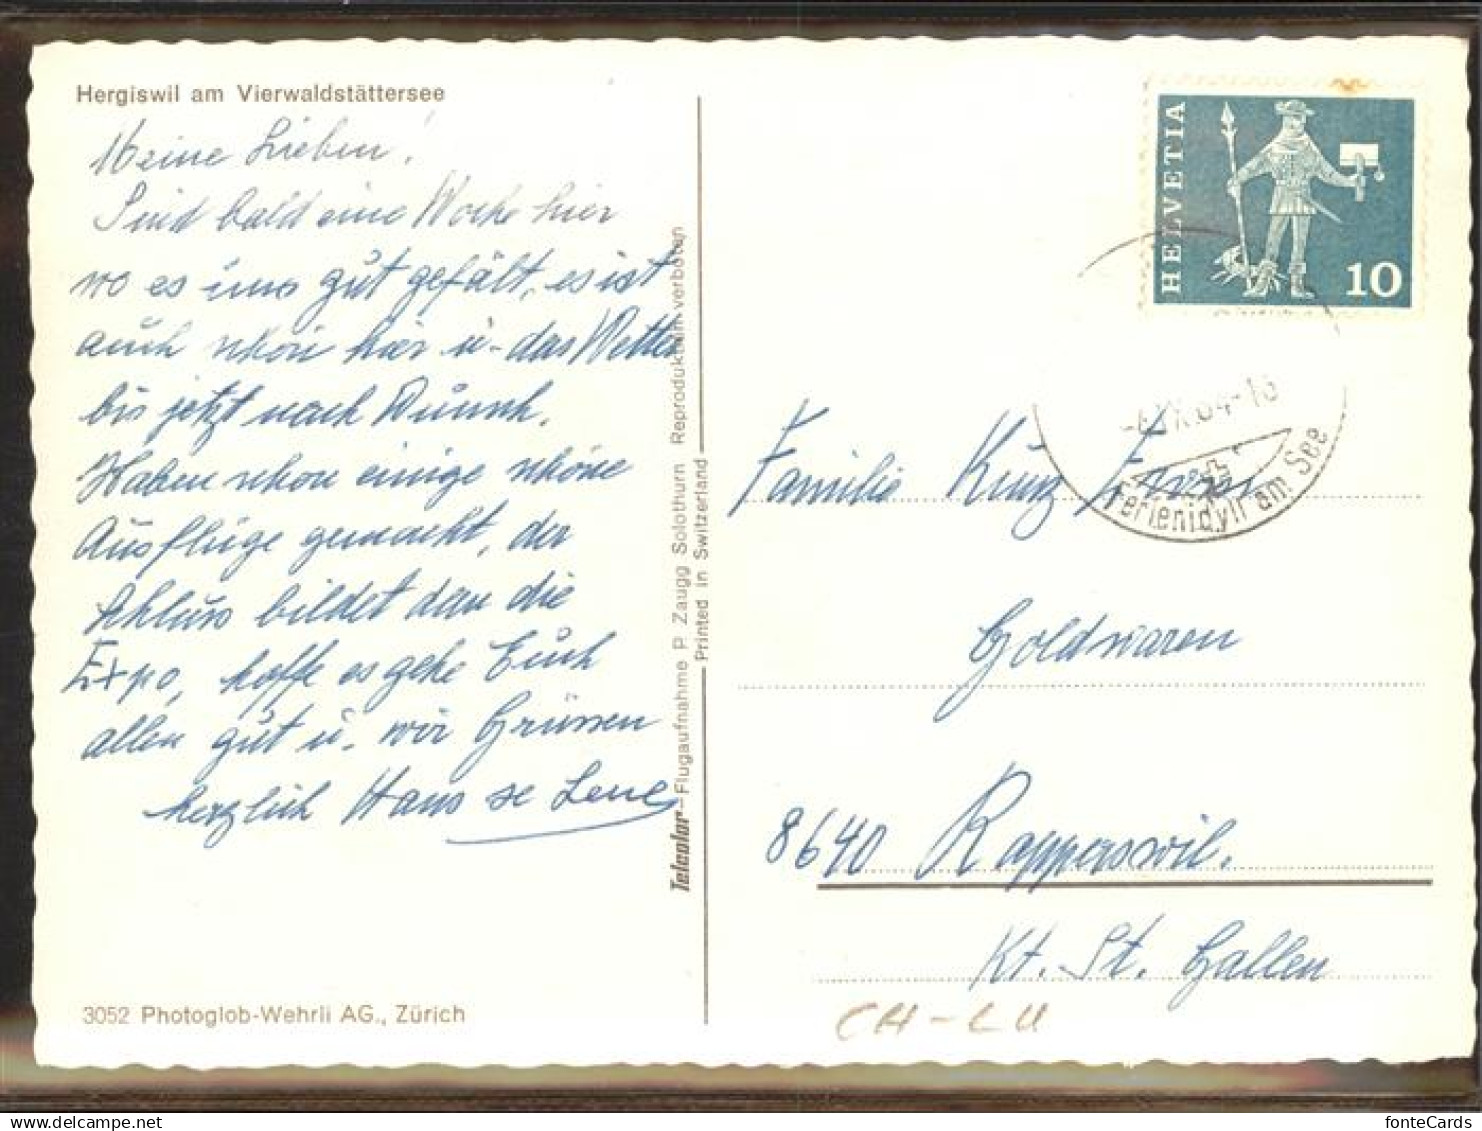 Hergiswil am Vierwaldstättersee
Meine Lieben!
Sind bald eine Woche hier
wo es uns gut gefält, es ist
auch schön hier u. das Wetter
bis jetzt nach Wunsch.
Haben schon einige schöne
Ausflüge gemacht, der
Schluss bildet dan die
Expo, hoffe es gehe Euch
allen gut u. wir Grüssen
herzlich Hans se Lene
3052 Photoglob-Wehrli AG., Zürich
Telcolor-Flugaufnahme P. Zaugg Solothurn Reproduktion verboten
Printed in Switzerland
HELVETIA
10
64-18
Ferienidyll am See
Familie Kunz
Goldwaren
8640 Rapperswil.
Kt. St. Gallen
CH-LU
fonteCards